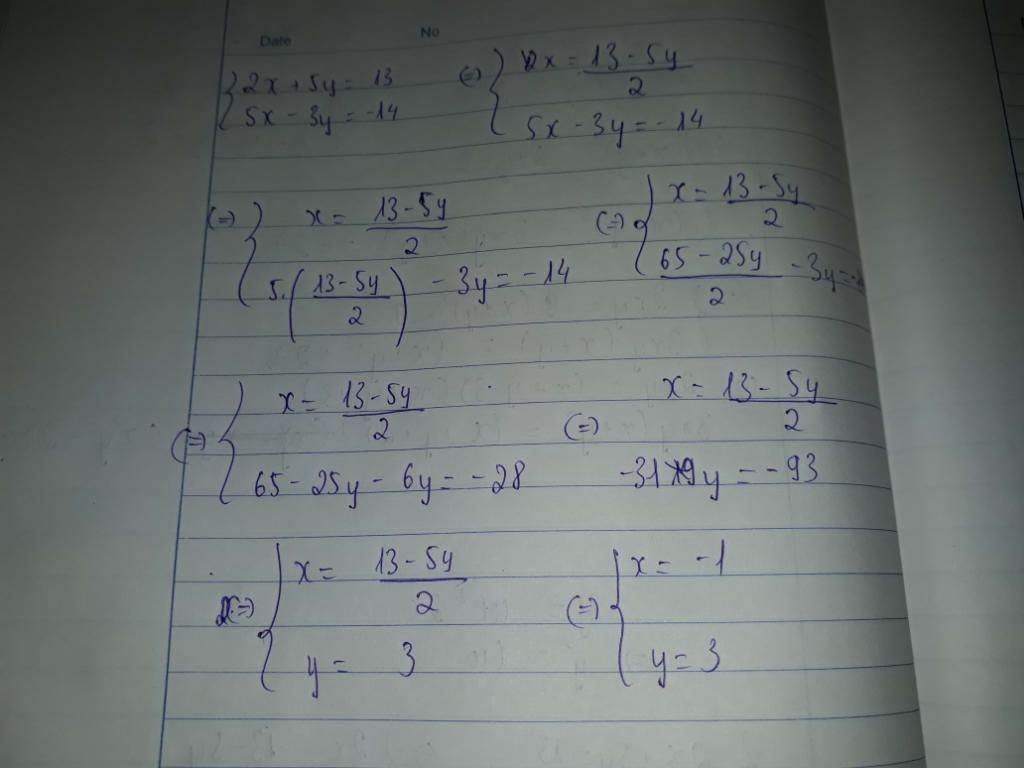 Date No
{ 2x + 5y = 13
5x - 3y = -14
(=) { x = 13 - 5y / 2
5x - 3y = -14
(=) { x = 13 - 5y / 2
5.(13 - 5y / 2) - 3y = -14
(=) { x = 13 - 5y / 2
65 - 25y / 2 - 3y = -
(=) { x = 13 - 5y / 2
65 - 25y - 6y = -28
(=) x = 13 - 5y / 2
-31 y = -93
(=) { x = 13 - 5y / 2
y = 3
(=) { x = -1
y = 3